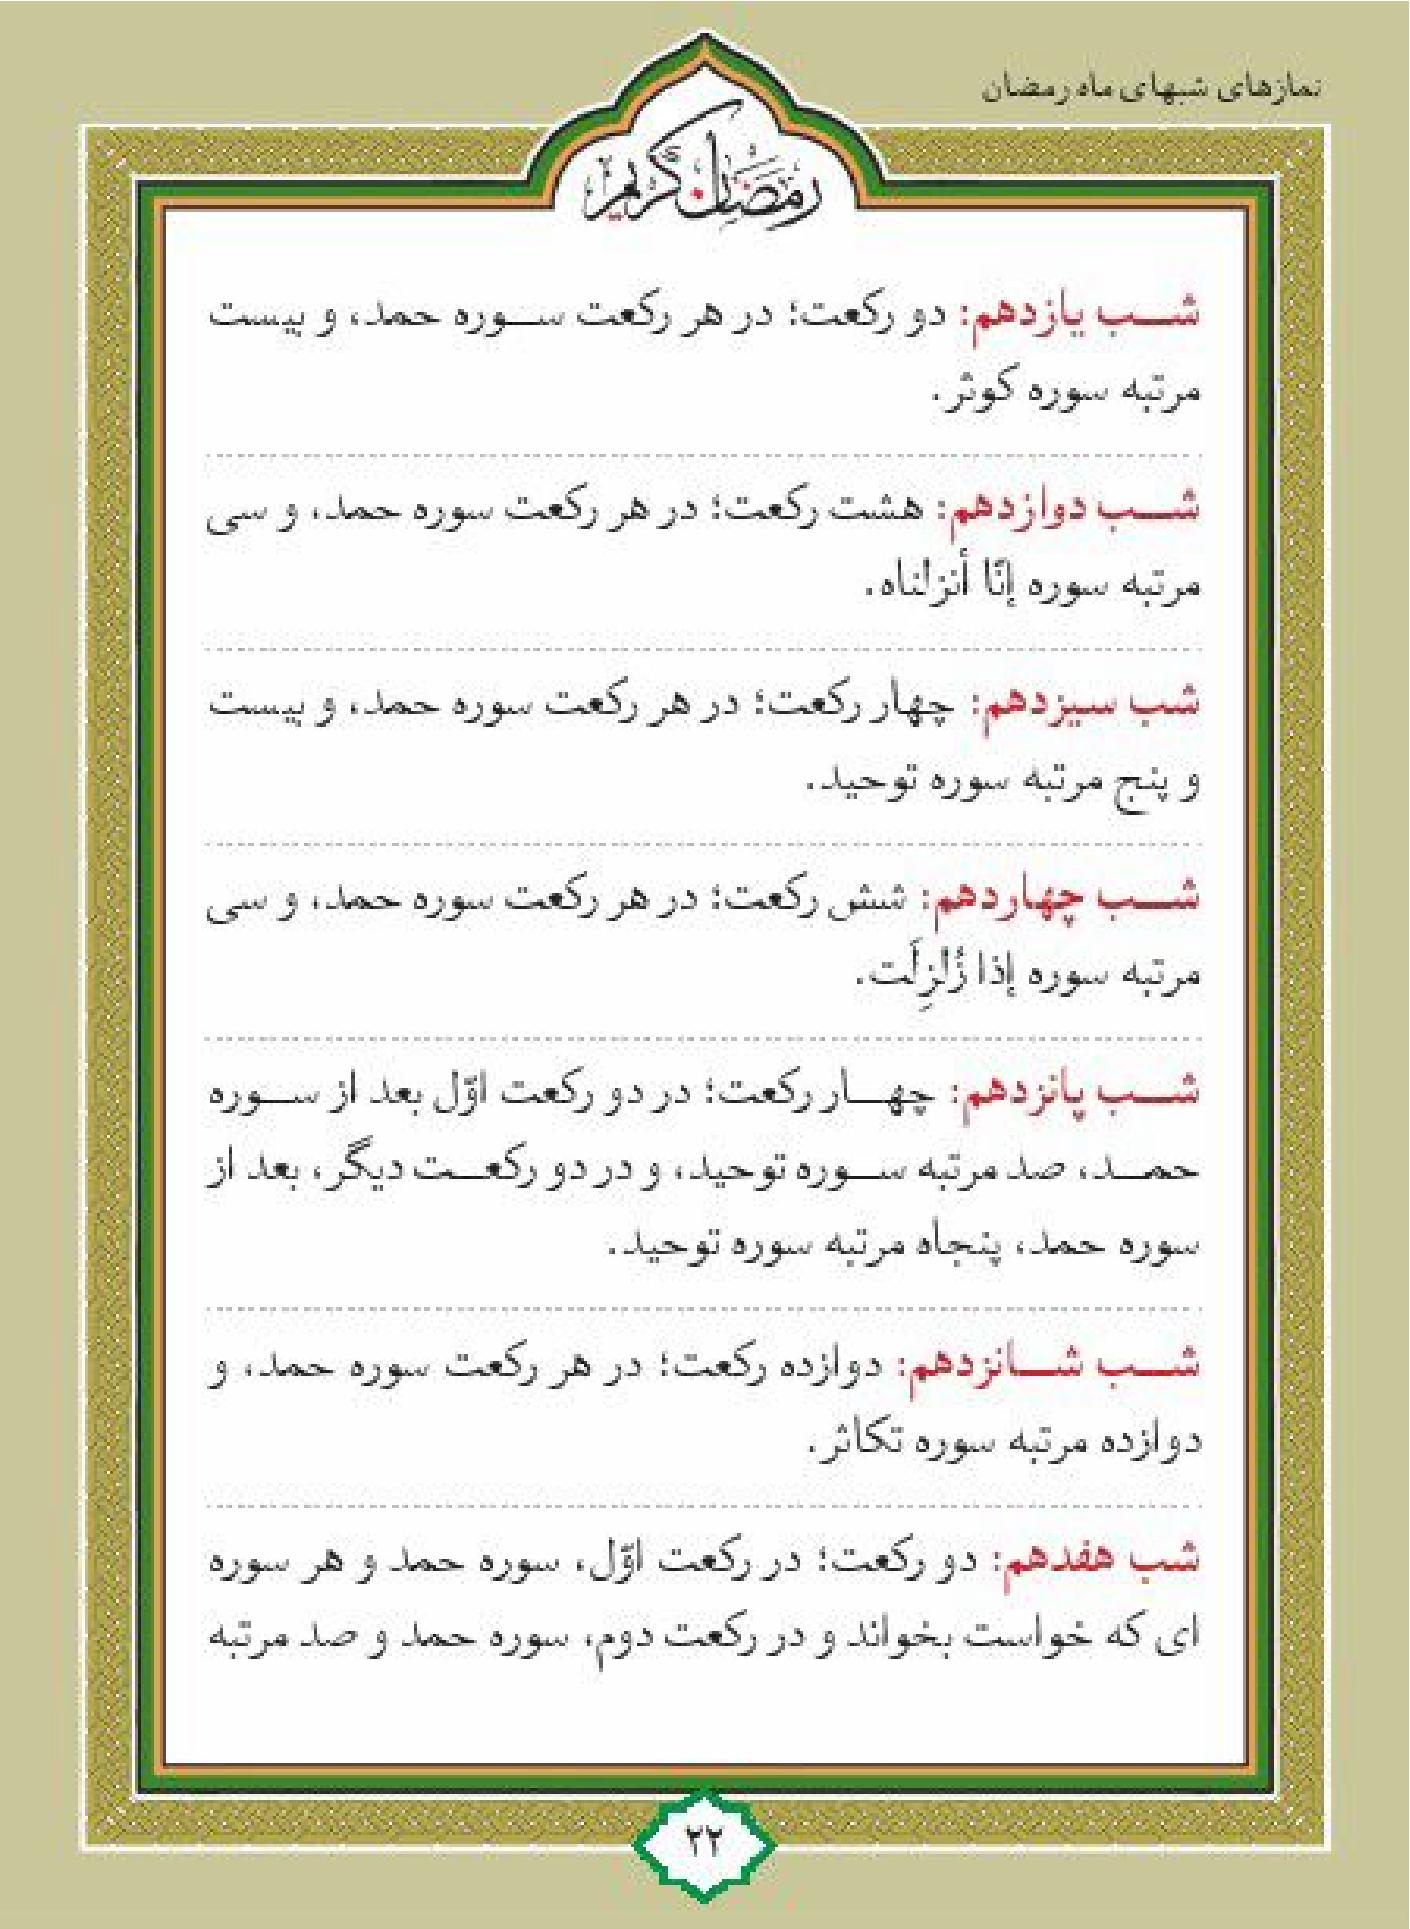 نمازهای شبهای ماه رمضان
رمضان کریم
شب یازدهم: دو رکعت؛ در هر رکعت سوره حمد، و بیست
مرتبه سوره کوثر.
شب دوازدهم: هشت رکعت؛ در هر رکعت سوره حمد، و سی
مرتبه سوره إنّا أنزلناه.
شب سیزدهم: چهار رکعت؛ در هر رکعت سوره حمد، و بیست
و پنج مرتبه سوره توحید.
شب چهاردهم: شش رکعت؛ در هر رکعت سوره حمد، و سی
مرتبه سوره إذا زُلزِلَت.
شب پانزدهم: چهار رکعت؛ در دو رکعت اوّل بعد از سوره
حمد، صد مرتبه سوره توحید، و در دو رکعت دیگر، بعد از
سوره حمد، پنجاه مرتبه سوره توحید.
شب شانزدهم: دوازده رکعت؛ در هر رکعت سوره حمد، و
دوازده مرتبه سوره تکاثر.
شب هفدهم: دو رکعت؛ در رکعت اوّل، سوره حمد و هر سوره
ای که خواست بخواند و در رکعت دوم، سوره حمد و صد مرتبه
۲۲